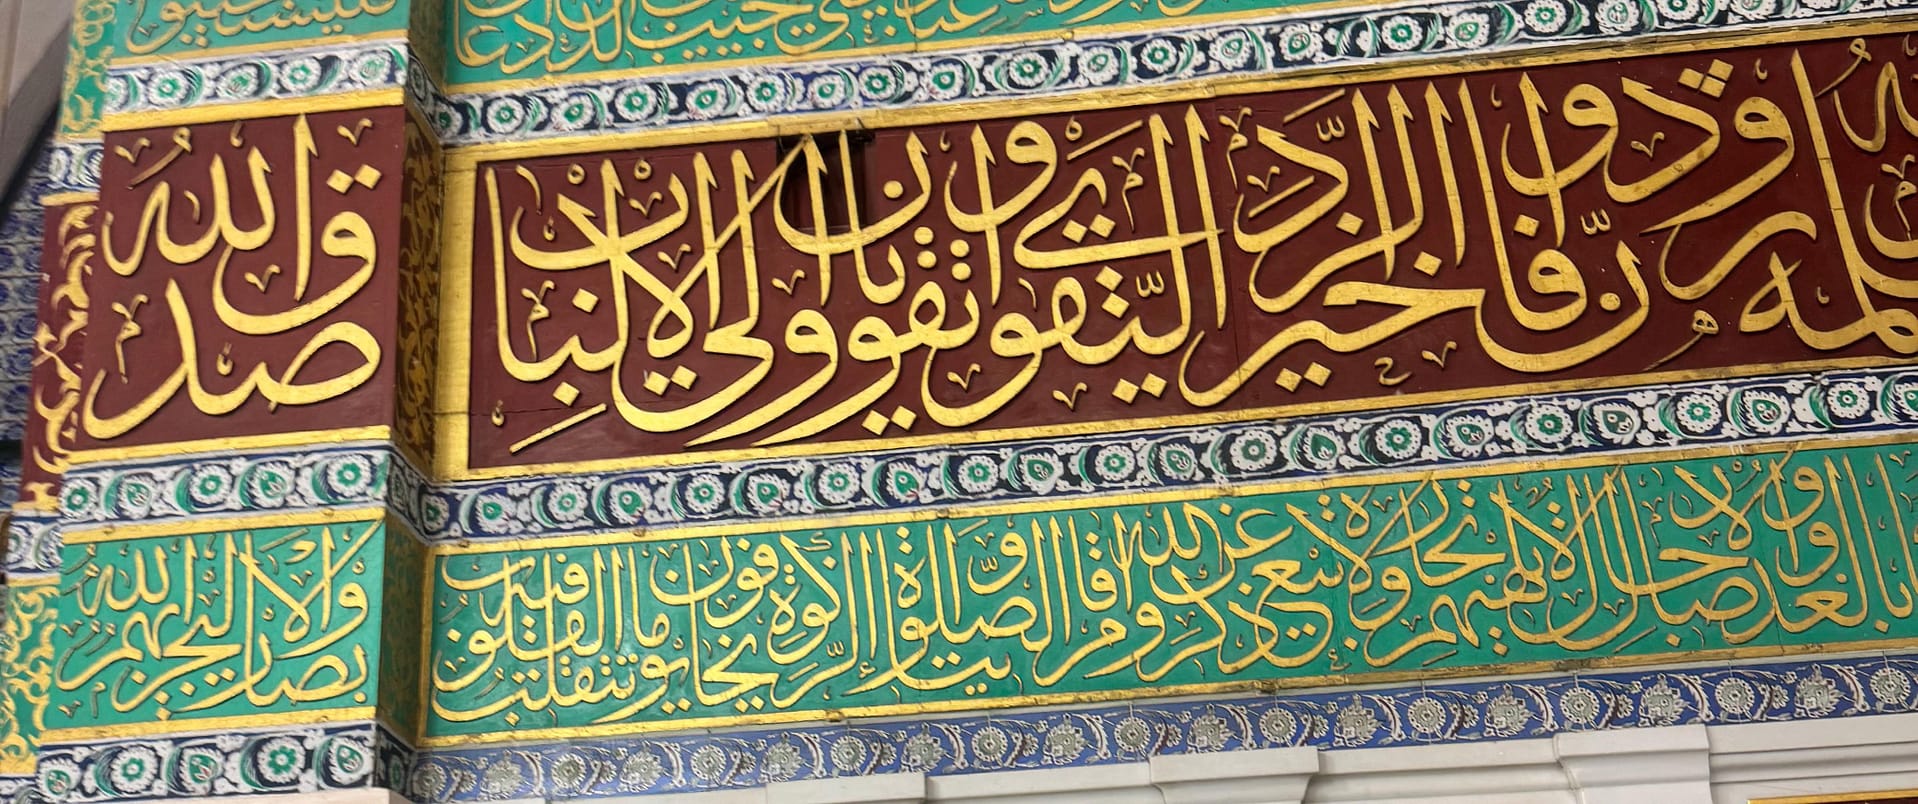 دعان فليستجيبوا
يعلمه الله وتزودوا فإن خير الزاد التقوى واتقون يا أولي الألباب صدق الله
بالغدو والآصال رجال لا تلهيهم تجارة ولا بيع عن ذكر الله وإقام الصلوة وإيتاء الزكوة يخافون يوما تتقلب فيه القلوب والأبصار ليجزيهم الله